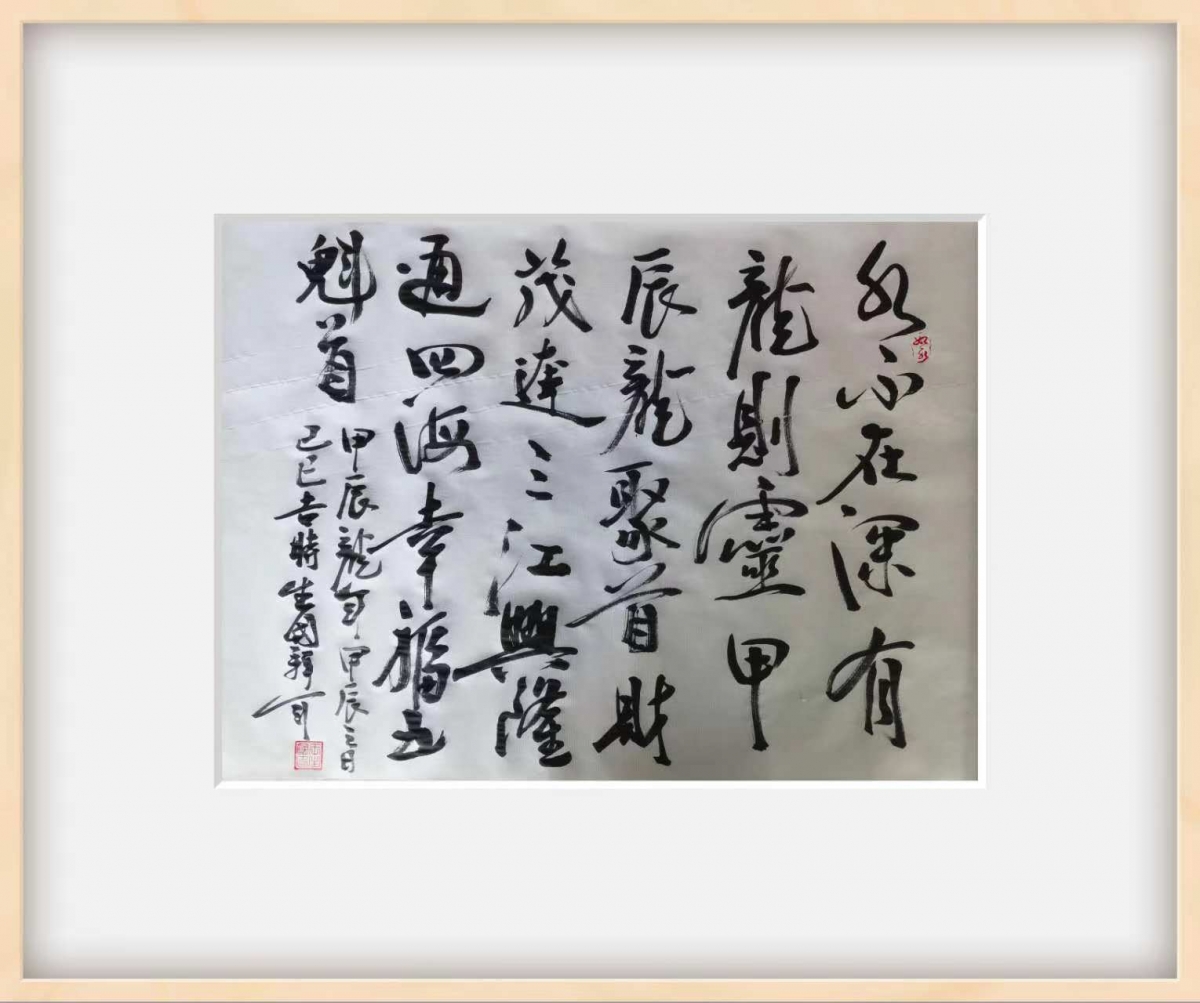 水不在深有
龍則靈甲
辰龍聚首財
茂達三江興隆
通四海幸福五
魁首
甲辰龍年甲辰三日
己巳吉時生國拜書